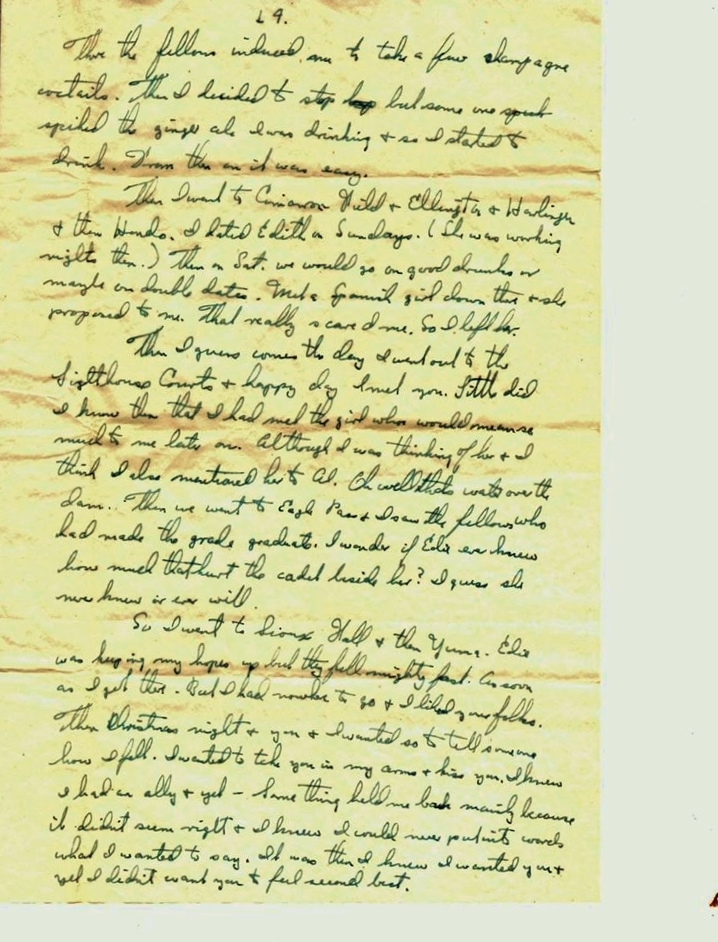 L 9.
There the fellows induced me to take a few champagne
coctails. Then I decided to stop but some one
spiked the ginger ale I was drinking & so I started to
drink. From then on it was easy.
Then I went to Cimarron Field & Ellington & Harlingen
& then Hondo. I dated Edith on Sundays. (She was working
nights then.) Then on Sat. we would go on good drunks or
maybe on double dates. Met a Spanish girl down there & she
proposed to me. That really scared me. So I left her.
Then I guess comes the day I went out to the
Lighthouse Courts & happy day I met you. Little did
I know then that I had met the girl who would mean so
much to me later on. Although I was thinking of her & I
think I also mentioned her to Al. Oh well thats water over the
dam. Then we went to Eagle Pass & I saw the fellows who
had made the grade graduate. I wonder if Edie ever knew
how much that hurt the cadet beside her? I guess she
never knew or ever will.
So I went to Sioux Fall & then Yuma. Edie
was keeping my hopes up but they fell mighty fast. As soon
as I got there. But I had nowhere to go & I liked your folks.
Then Christmas night & you & I wanted so to tell someone
how I felt. I wanted to take you in my arms & kiss you. I knew
I had an ally & yet – Some thing held me back mainly because
it didn't seem right & I knew I could never put into words
what I wanted to say. It was then I knew I wanted you &
yet I didn't want you to feel second best.